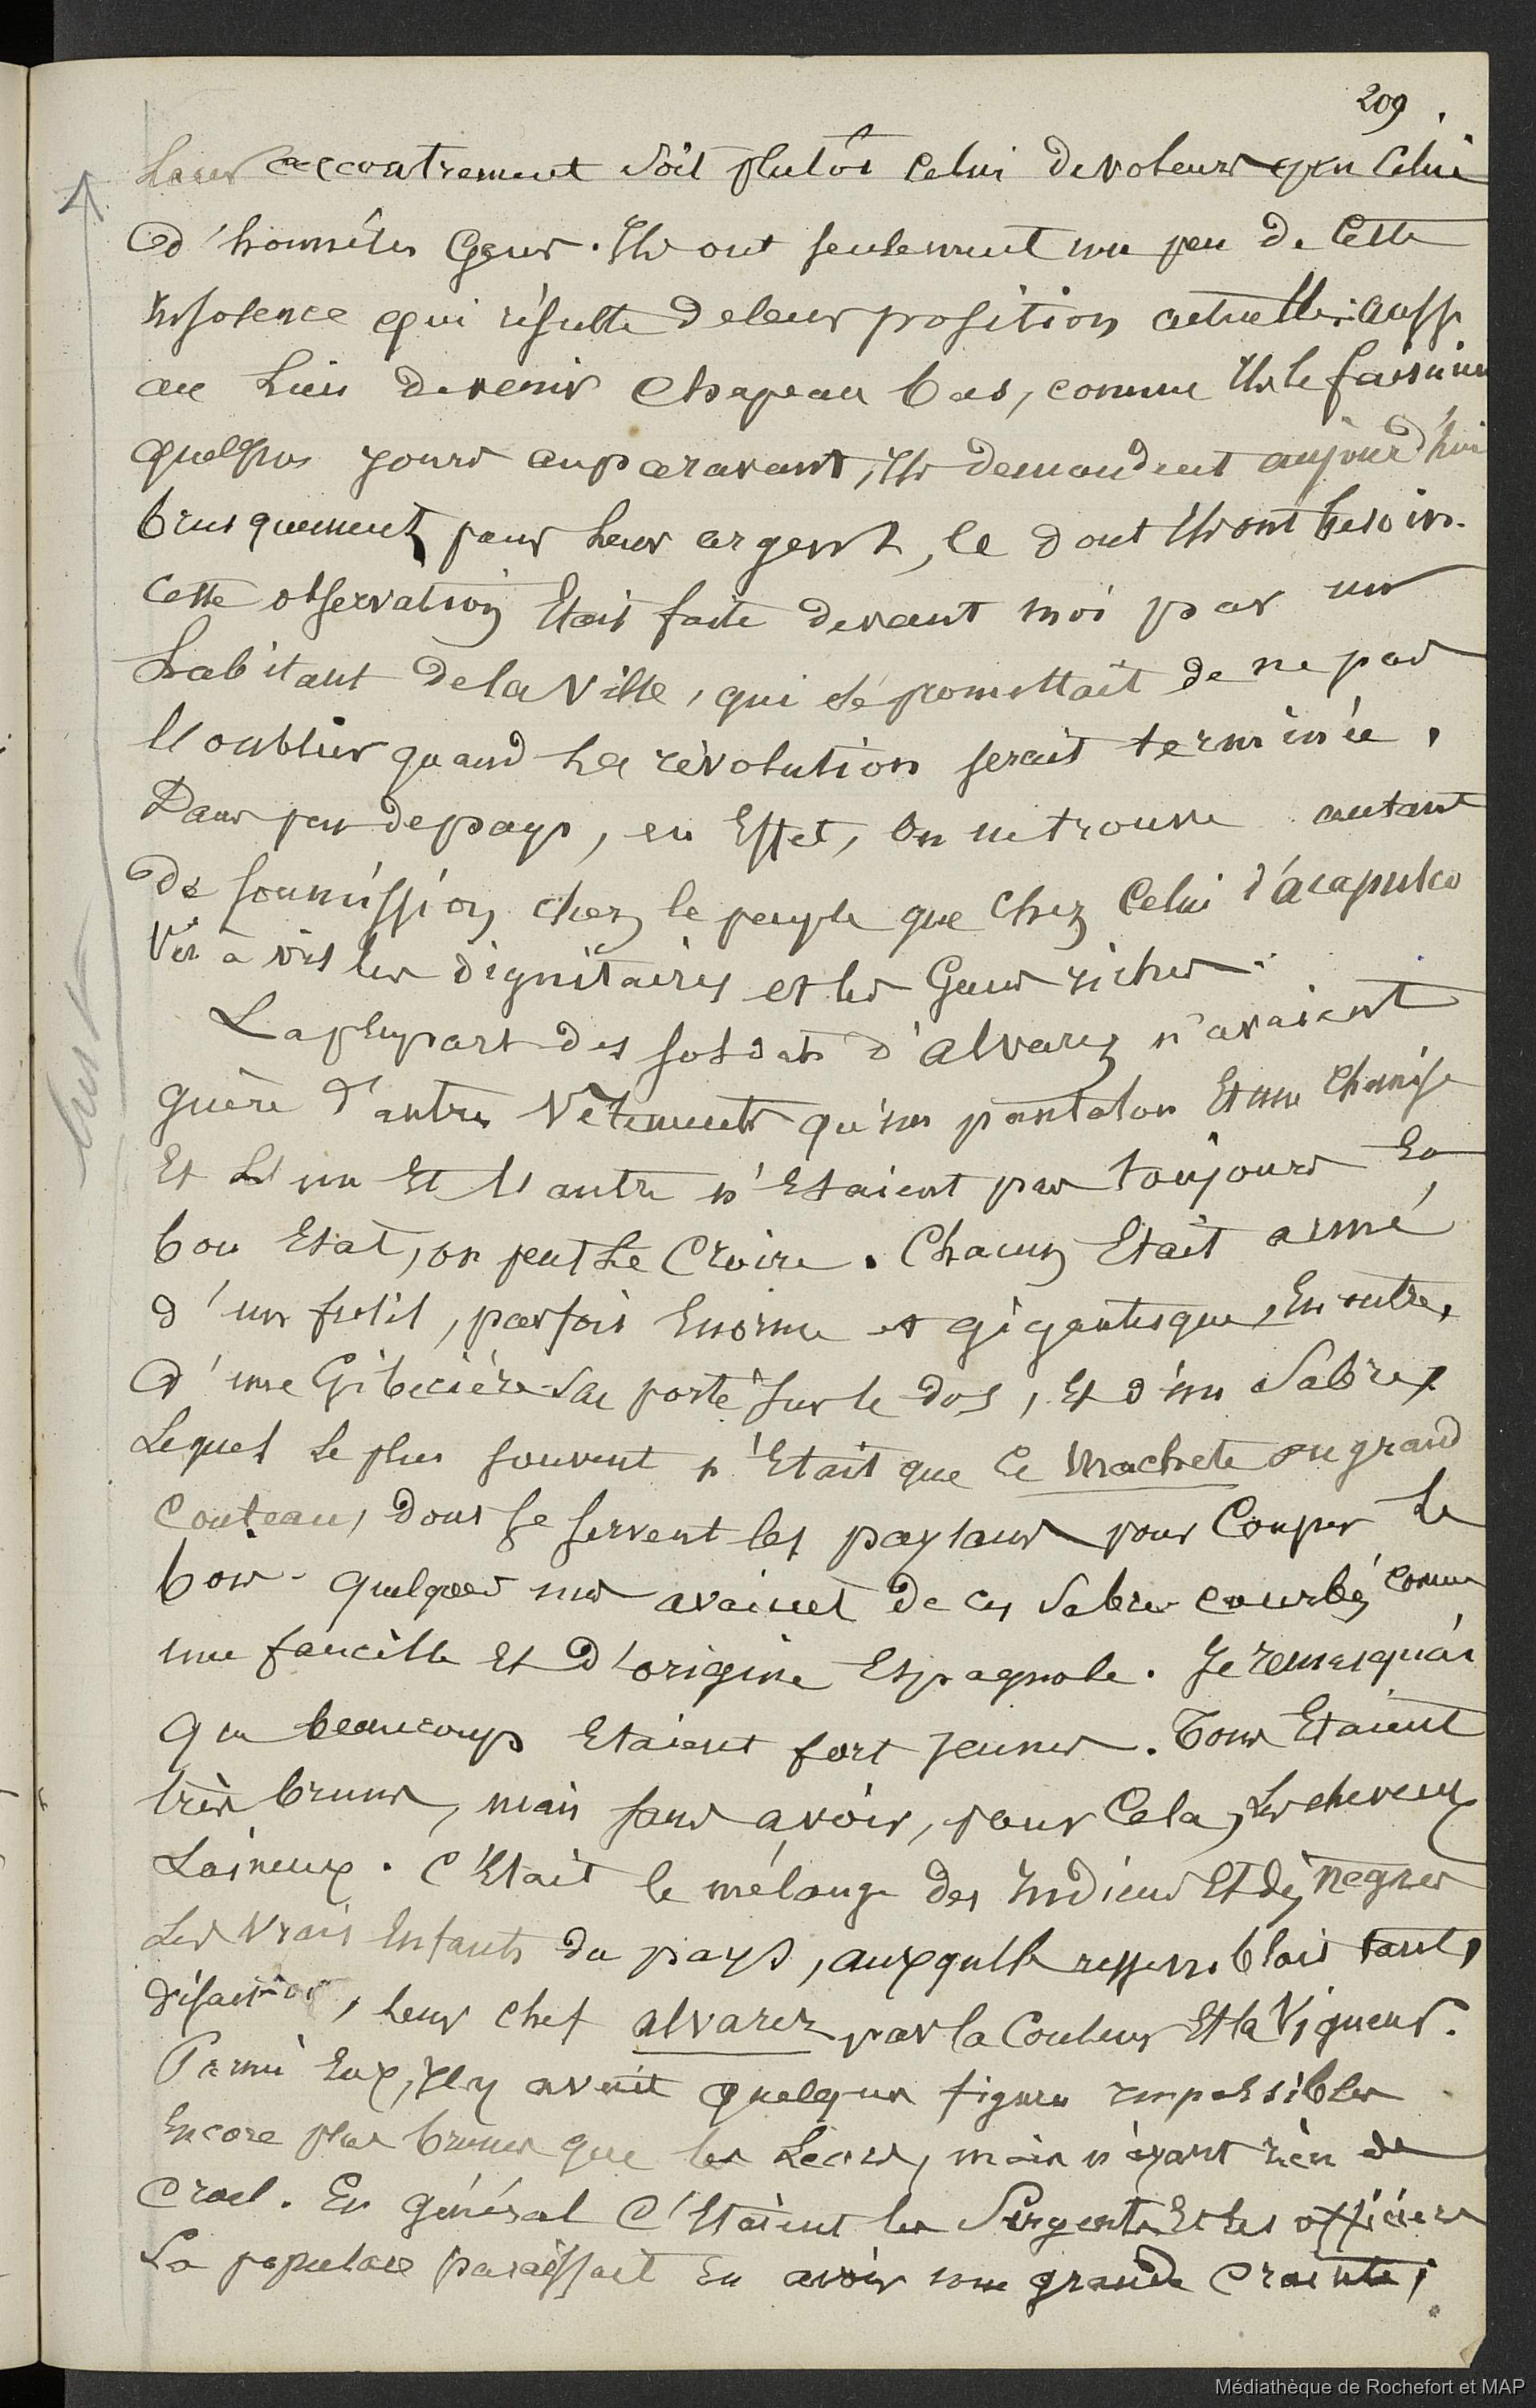 209
Leur accoutrement soit plutôt celui de voleurs qu'un celui
d'honnêtes Gens. Ils ont seulement un peu de cette
insolence qui résulte de leur position actuelle; aussi
au lieu de venir chapeau bas, comme ils le faisaient
quelques jours auparavant, ils demandent aujourd'hui
brusquement pour leur argent, ce dont ils ont besoin.
Cette observation était faite devant moi par un
habitant de la Ville, qui se promettait de ne pas
l'oublier quand la révolution serait terminée.
Dans peu de pays, en effet, on ne trouve autant
de soumission chez le peuple que chez celui d'acapulco
Vis à vis les dignitaires et les Gens riches.
La plupart des soldats d'Alvarez n'avaient
guère d'autres vêtements qu'un pantalon et une chemise
Et l'un et l'autre n'étaient pas toujours en
bon état, on peut le croire. Chacun était armé
d'un fusil, parfois énorme et gigantesque, en outre,
d'une Gibecière sac porté sur le dos, et d'un sabre,
lequel le plus souvent n'était que le machete ou grand
couteau, dont se servent les paysans pour couper le
bois. Quelques uns avaient de ces sabres courbés comme
une faucille et d'origine Espagnole. Je remarquai
que beaucoup étaient fort jeunes. Tous étaient
très bruns, mais sans avoir, pour cela, les cheveux
laineux. C'était le mélange des Indiens et des nègres
les vrais enfants du pays, auxquels ressemblait tant,
disait-on, leur chef alvarez par la couleur et la vigueur.
Parmi eux, il y avait quelques figures impossibles
encore plus brunes que les leurs, mais n'ayant rien de
cruel. En général c'étaient les Sergents et les officiers
La populace paraissait en avoir une grande crainte;